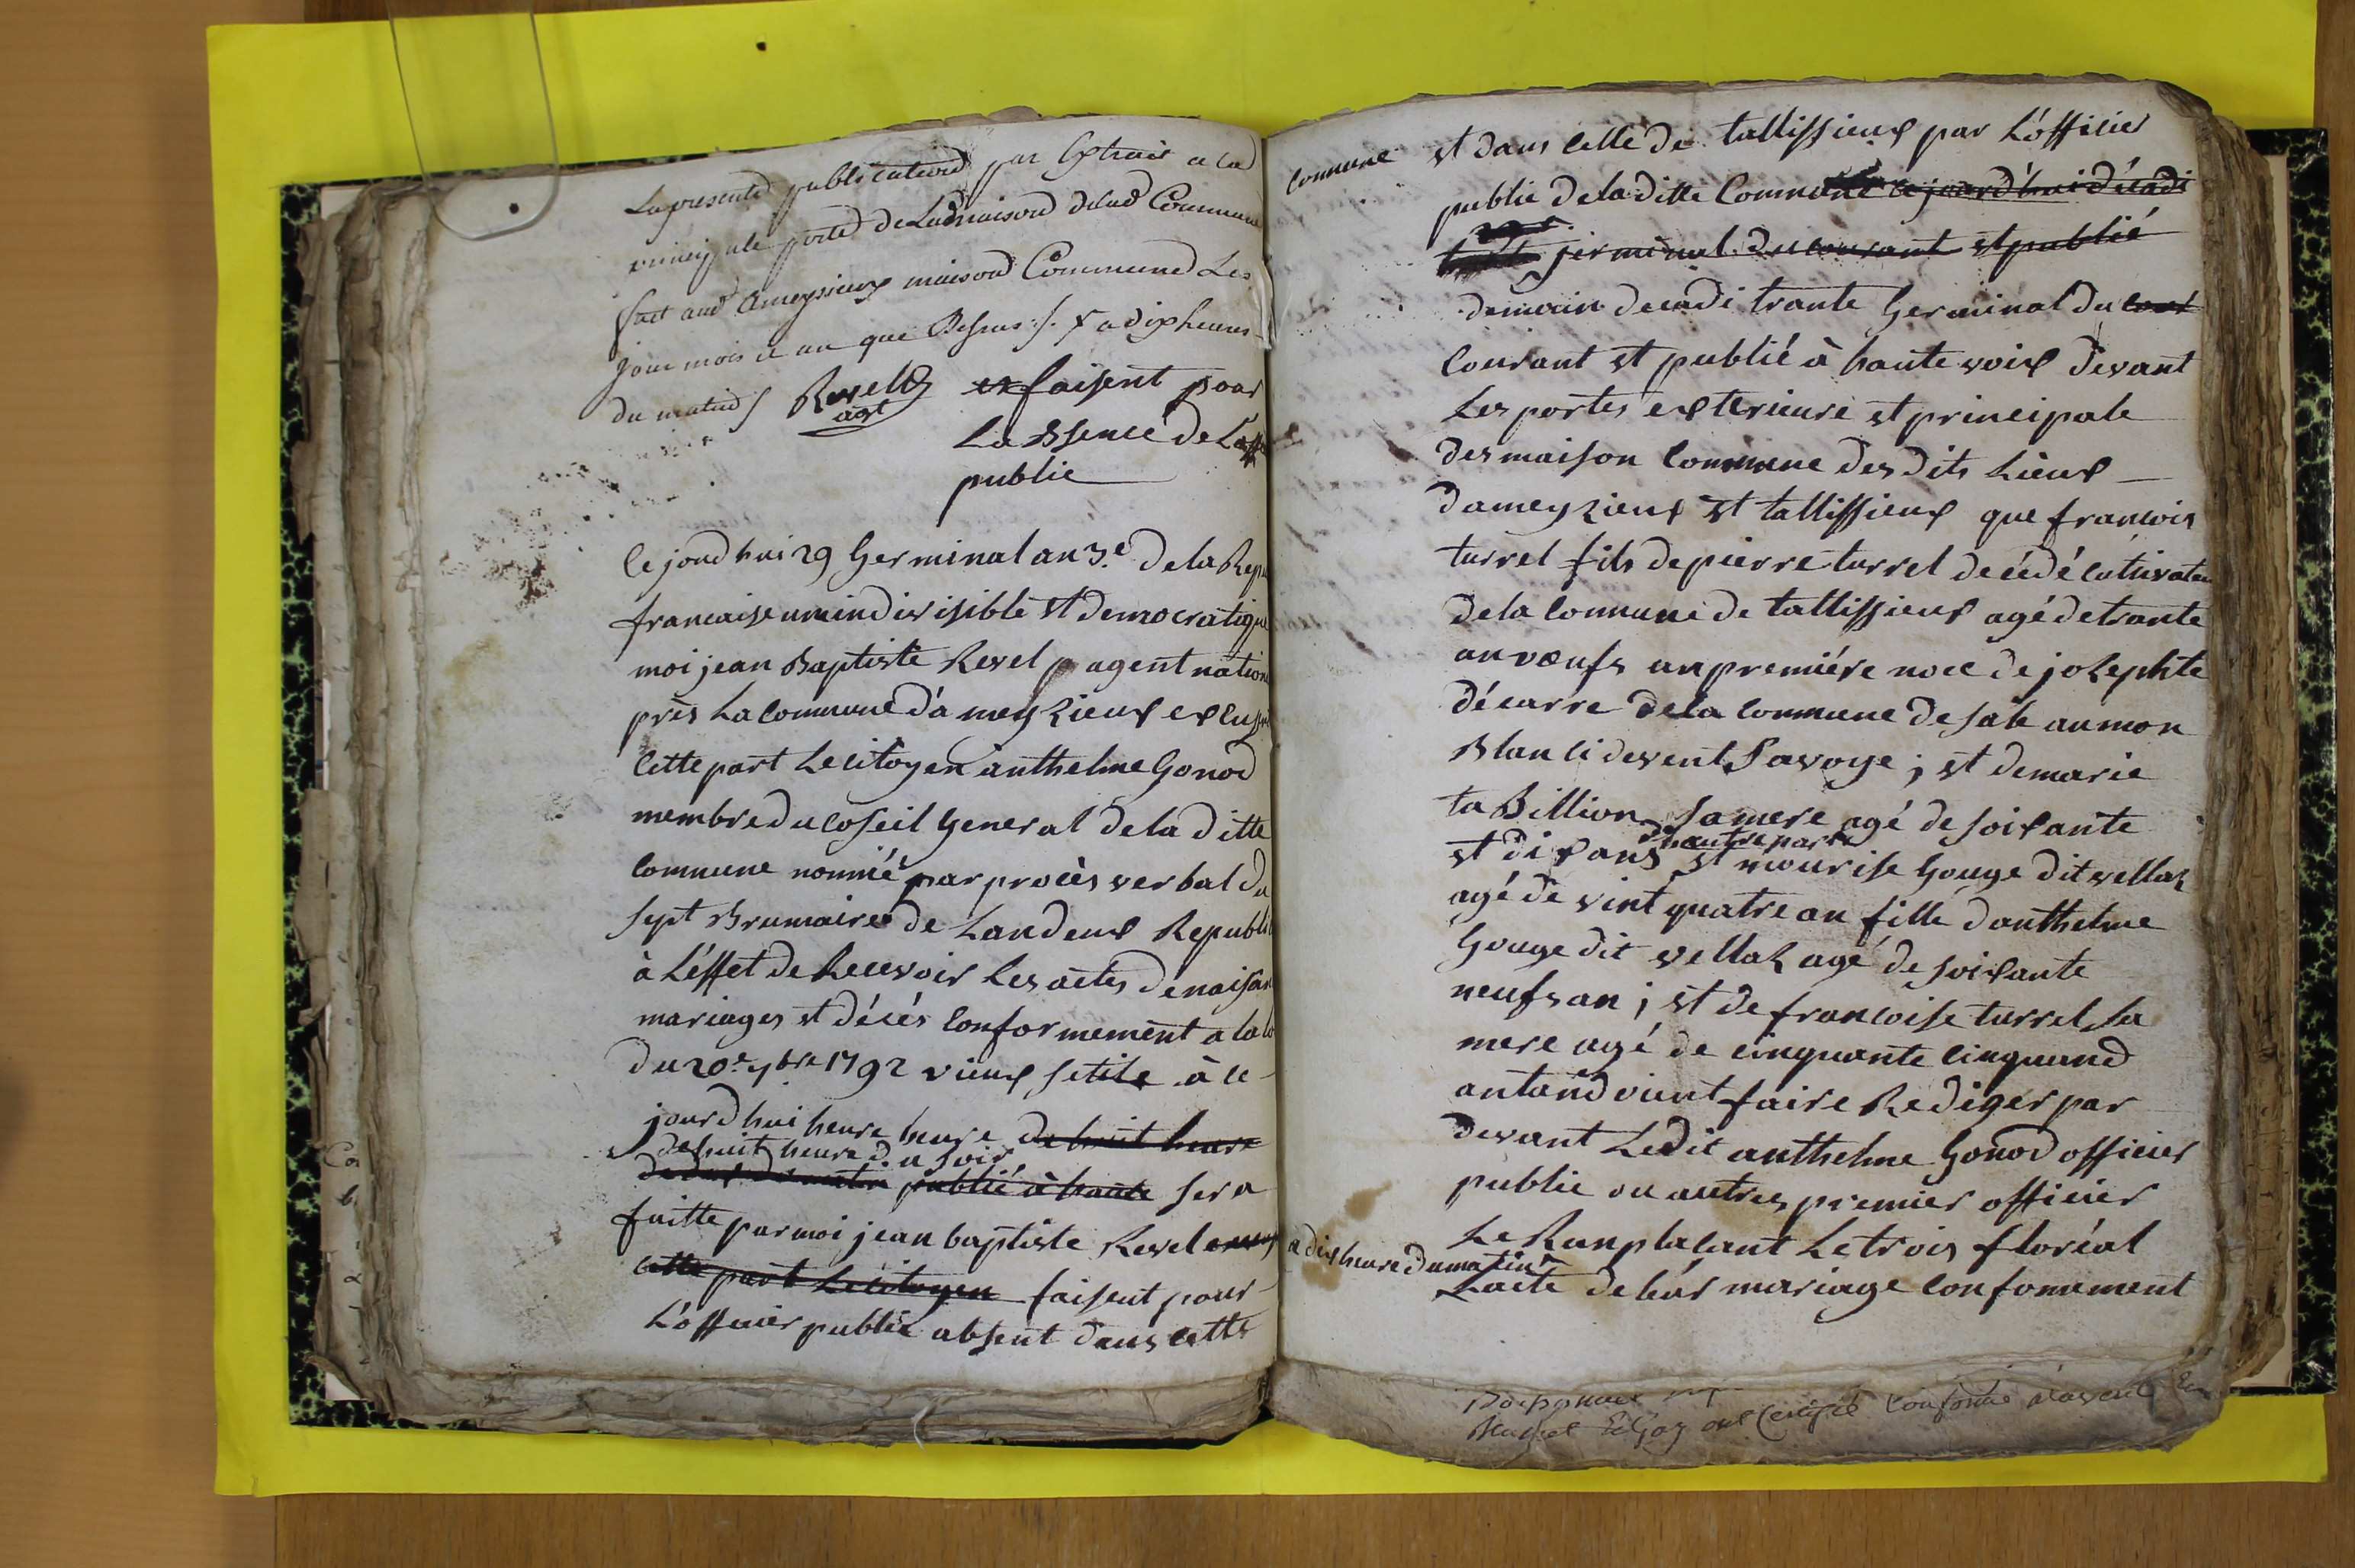 La presente publication par Extrait a la
principale porte de La maison de la Commune
fait aud ameysieux maison Commune Les
jour mois et an que Dessus ./. x a dix heures
du matin / Revel agt faisent pour
La Bsence de L'off
public
Ce joud huis 29 Germinal an 3.e de la Repu
francaise un indivisible et democratique
moi jean Baptiste Revel agent nation
près La commune d'ameyzieux
Cette part Le citoyen anthelme Gonod
membre du coseil General de la ditte
commune nommé par procès verbal du
sept Brumaire de Lan deux Republi
à L'éffet de Recevoir Les actes de naisan
mariages et décés Conformement a la lo
du 20.e 7bre 1792 vieux stile à ce
jourd'hui heure heure de huit heure
de huit heure du soir
publié à haute sera
faitte par moi jean baptiste Revel
cette part Le citoyen faisent pour
L'officier public absent dans cette
Commune et dans celle de tallissieux par L'officier
public de la ditte Commune cejourd'hui décadi
jerminal du courant et publié
demain decadi trante Germinal du cour
Courant et publié à haute voix devant
Les portes exterieure et principale
des maison Commune des dits Lieux
dameyzieux et tallissieux que francois
turrel fils de pierre turrel décédé cultivateu
de la Commune de tallissieux agé de trante
an voeufs an premiére noce de jozephte
décarre de la Commune de sale au mon
Blan ci devent Savoye ; et de marie
ta Billion sa mere agé de soixante
et dix ans d'hautre part
et mourise Gouge dit vellaz
agé de vint quatre an fille danthelme
Gouge dit vellaz agé de soixante
neufs an ; et de francoise turrel sa
mere agé de cinquante cinquand
antand viunt faire Rediger par
devant Ledit anthelme Gonod officier
public ou autres premier officier
Le Ranplacant Le trois floréal
a dix heure du matin
Lacte de leur mariage Confomement